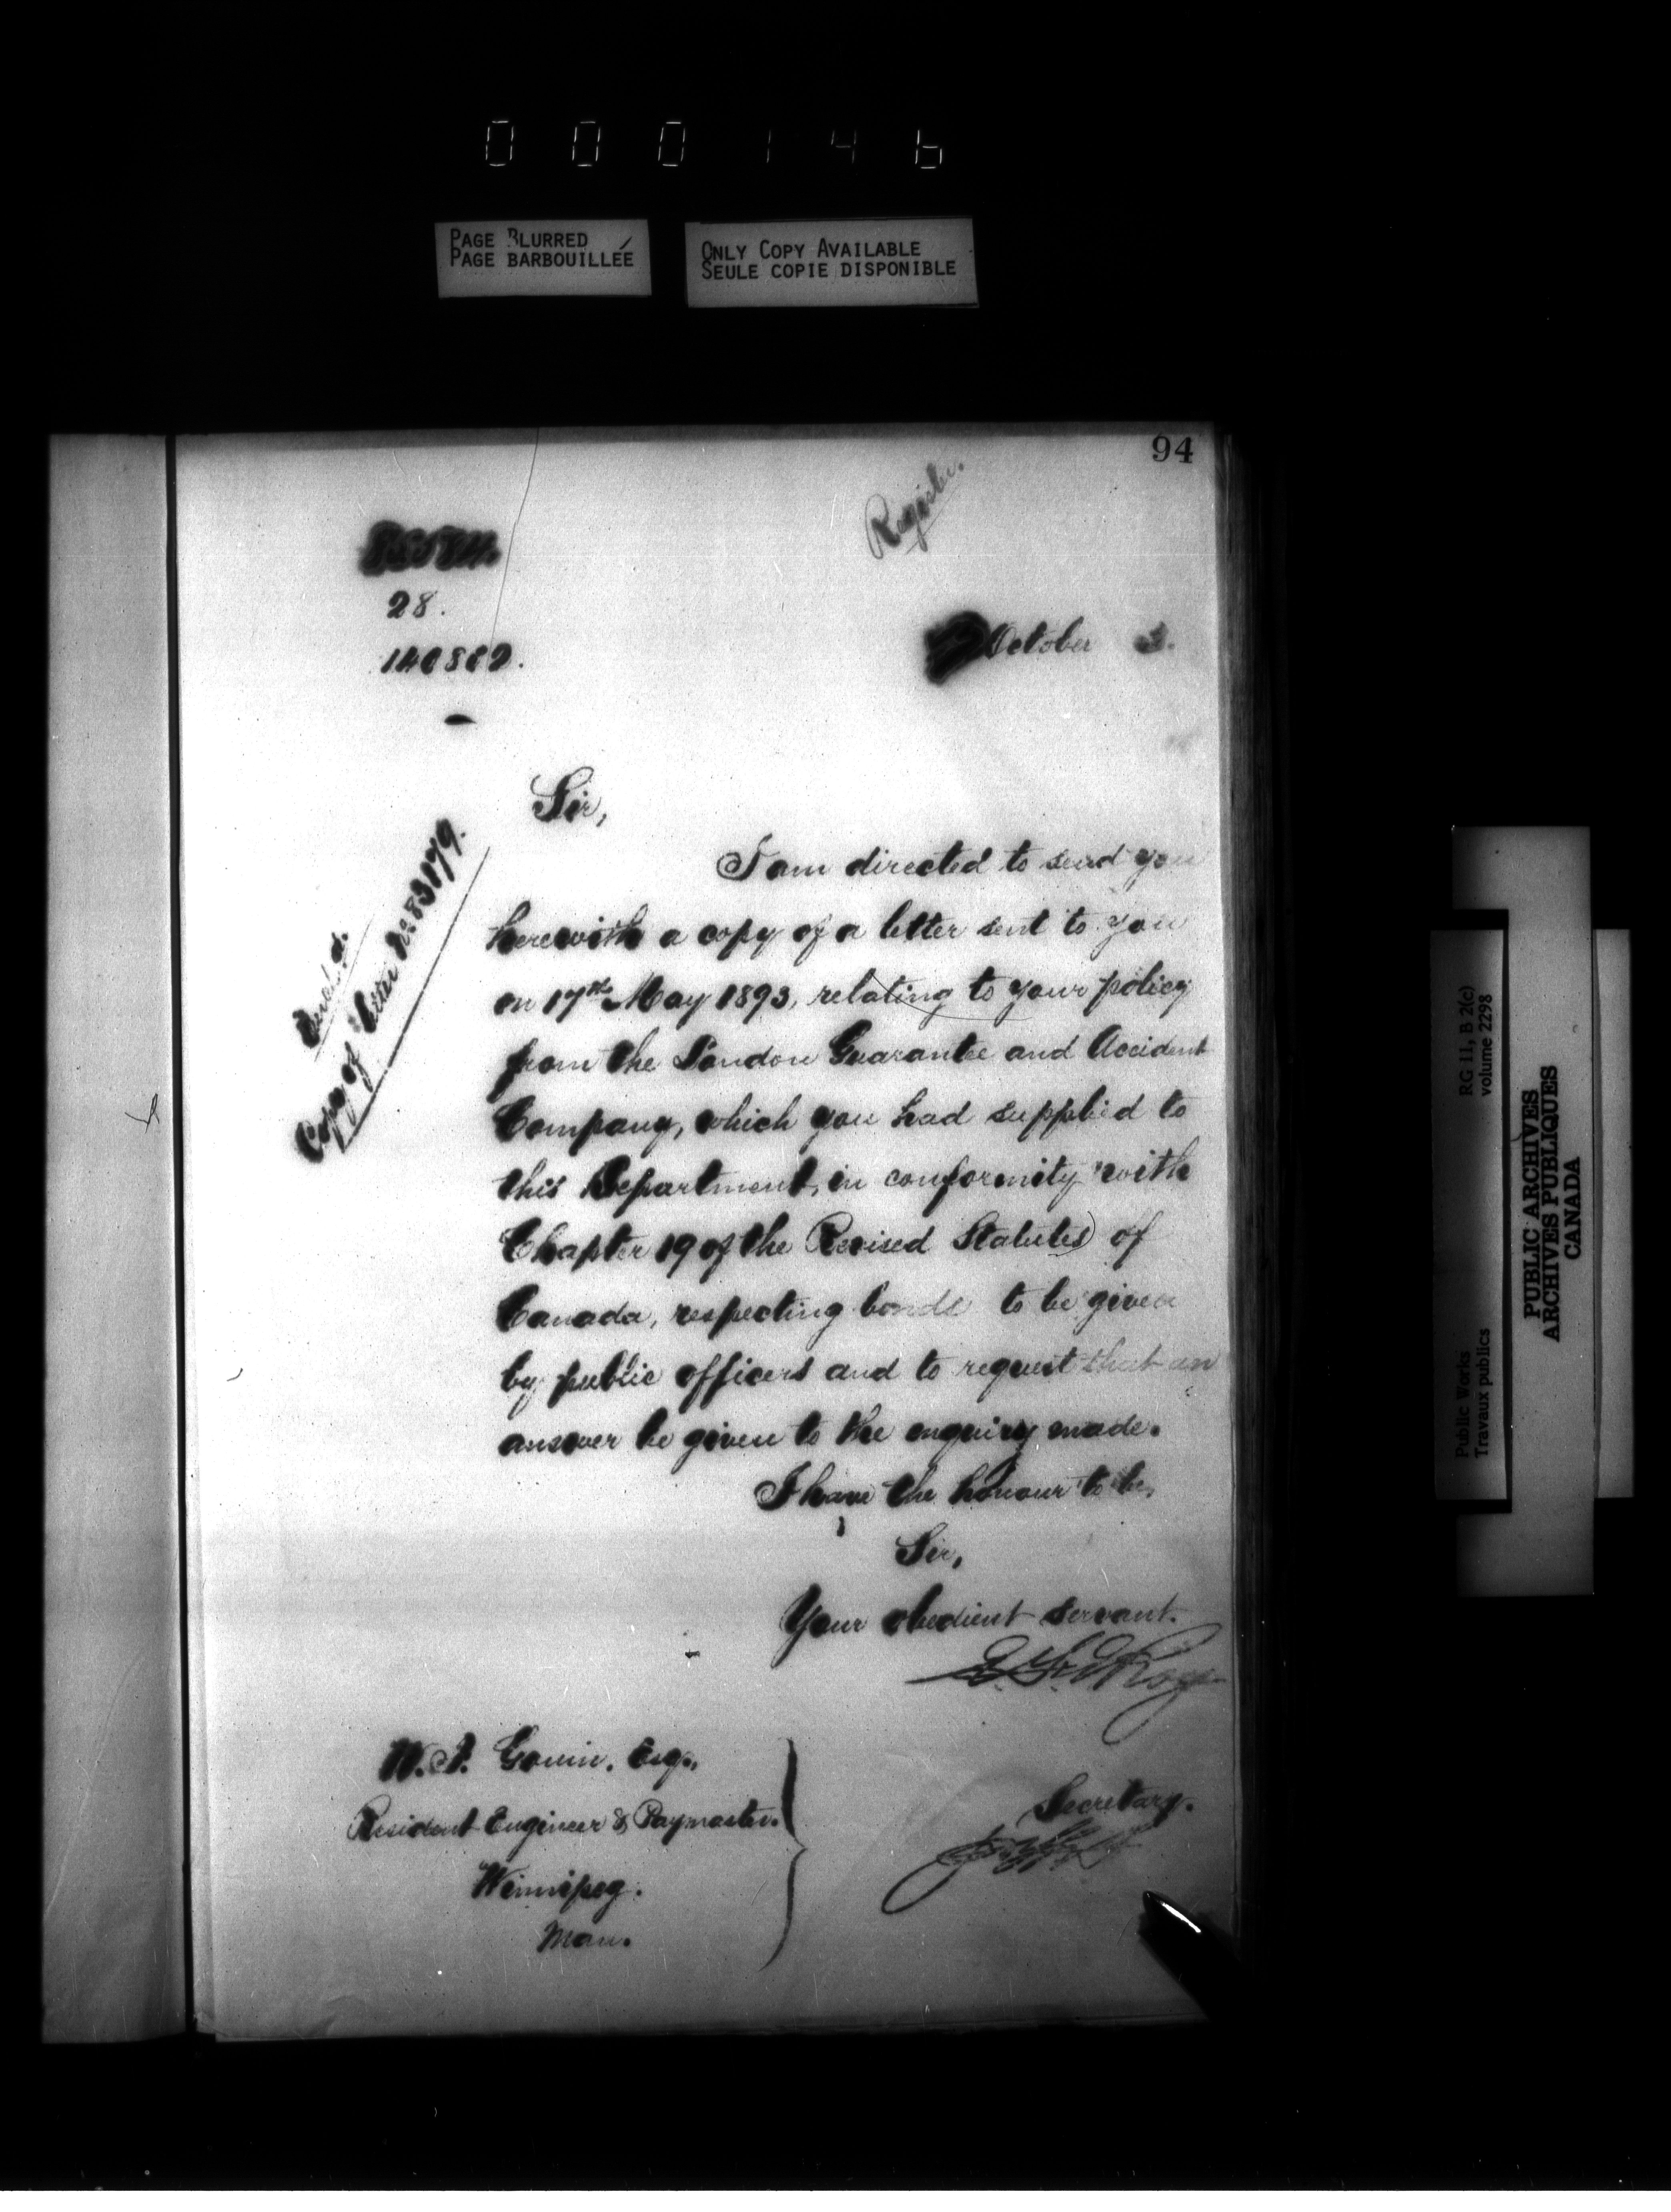 000146
PAGE BLURRED
PAGE BARBOUILLÉE
ONLY COPY AVAILABLE
SEULE COPIE DISPONIBLE
94
Register.
28.
October
Sir,
I am directed to send you
herewith a copy of a letter sent to you
on 17th May 1893, relating to your policy
from the London Guarantee and Accident
Company, which you had supplied to
this Department, in conformity with
Chapter 19 of the Revised Statutes of
Canada, respecting bonds to be given
by public officers and to request that an
answer be given to the enquiry made.
Copy of letter No 83179.
I have the honour to be,
Sir,
Your obedient servant.
E. F. E. Roy
Secretary.
Esq.,
Resident Engineer & Paymaster.
Winnipeg.
Man.
Public Works
Travaux publics
RG 11, B 2(c)
volume 2298
PUBLIC ARCHIVES
ARCHIVES PUBLIQUES
CANADA